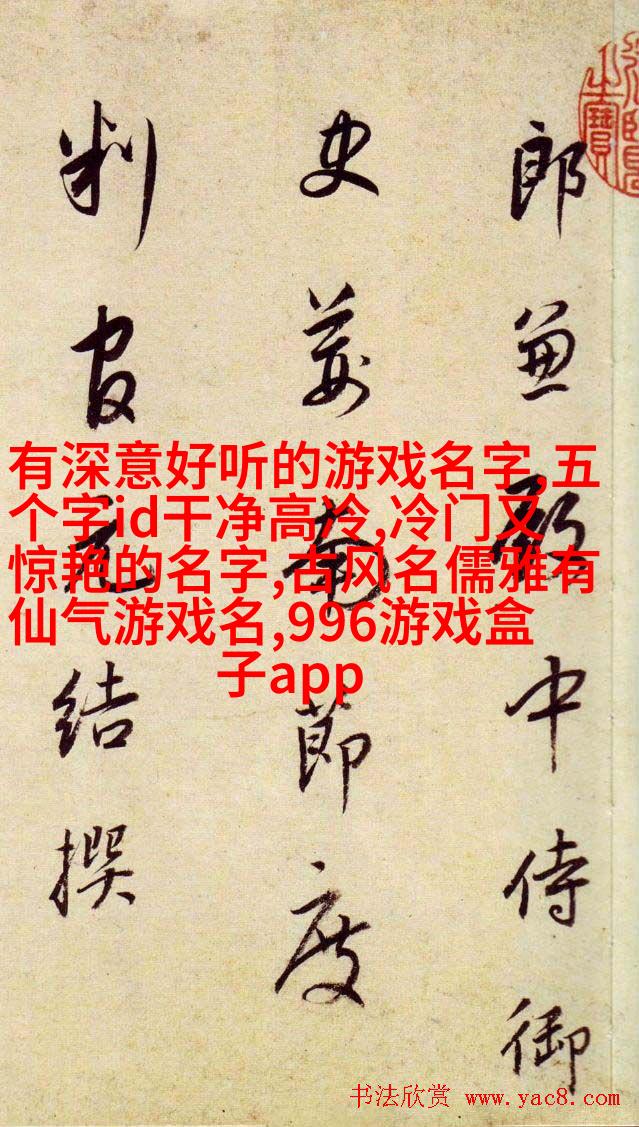 郎兼殿中侍御
史荊南節度
判官元結撰
有深意好听的游戏名字,五
个字id干净高冷,冷门又
惊艳的名字,古风名儒雅有
仙气游戏名,996游戏盒
子app
书法欣赏 www.yac8.com